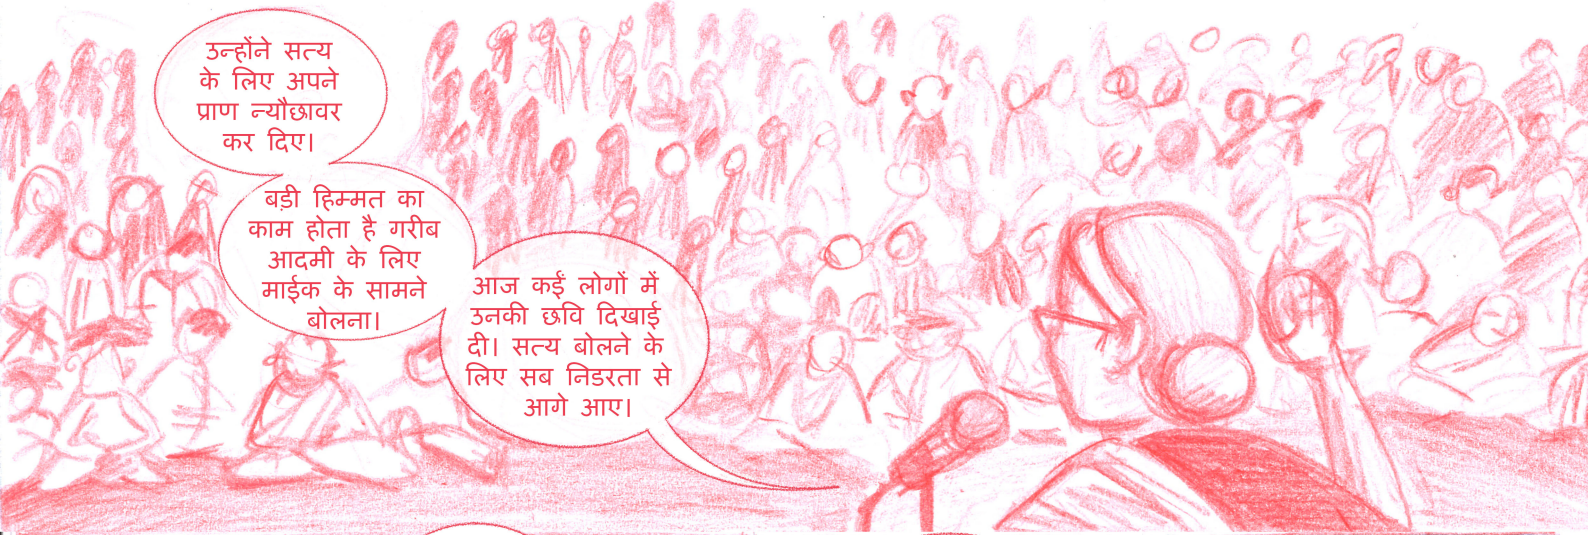 उन्होंने सत्य
के लिए अपने
प्राण न्यौछावर
कर दिए।
बड़ी हिम्मत का
काम होता है गरीब
आदमी के लिए
माईक के सामने
बोलना।
आज कईं लोगों में
उनकी छवि दिखाई
दी। सत्य बोलने के
लिए सब निडरता से
आगे आए।